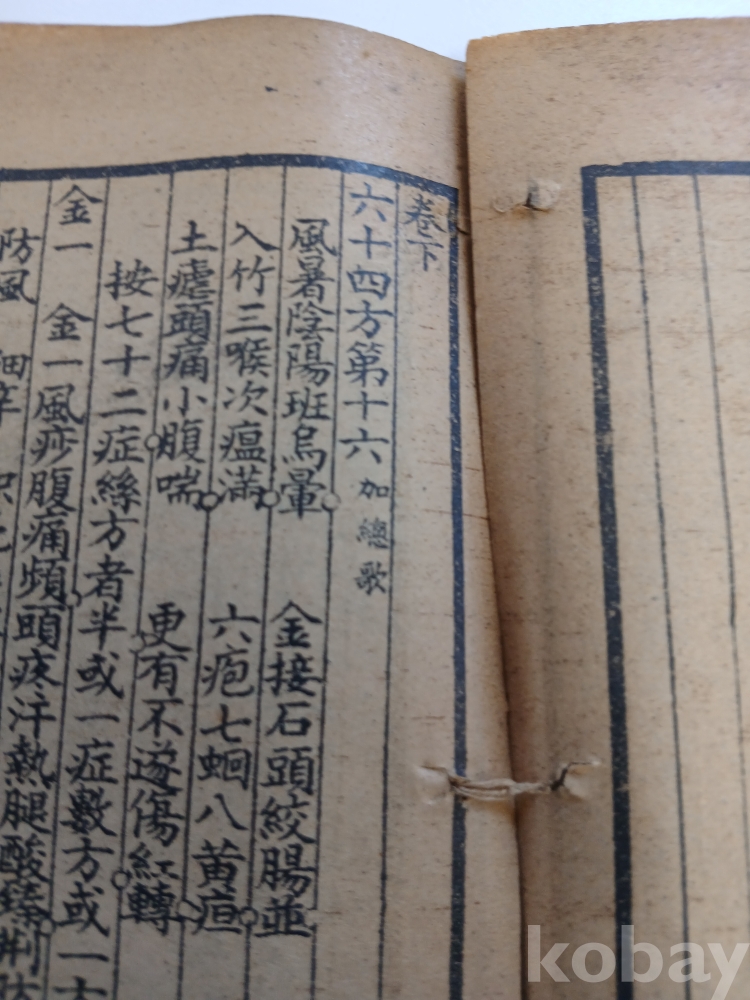 卷下
六十四方第十六 加總歌
風暑陰陽班烏暈 金接石頭絞腸並
入竹三喉次瘟滿 六疱七蛔八黄疸
土瘧頭痛小腹喘 更有不遂傷紅轉
按七十二症絲方者半或一症數方或一
金一 金一風痧腹痛煩頭疼汗熱腿酸
防風 細辛
kobay